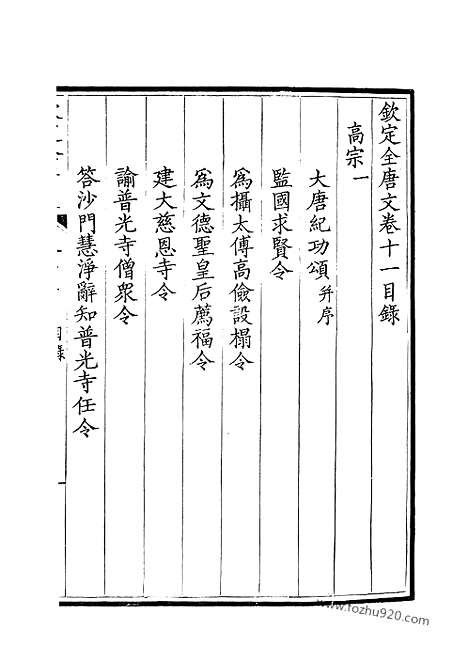 欽定全唐文卷十一目錄
高宗一
大唐紀功頌并序
監國求賢令
為攝太傅高儉設榻令
為文德聖皇后薦福令
建大慈恩寺令
諭普光寺僧眾令
答沙門慧淨辭知普光寺任令
目錄
一
www.fozhu920.com